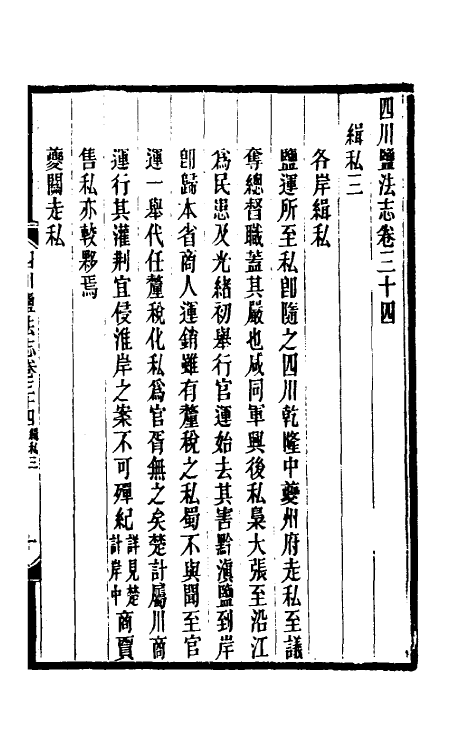 四川鹽法志卷三十四
緝私三
各岸緝私
鹽運所至私卽隨之四川乾隆中夔州府走私至議
奪總督職蓋其嚴也咸同軍興後私梟大張至沿江
爲民患及光緒初舉行官運始去其害黔滇鹽到岸
卽歸本省商人運銷雖有釐稅之私蜀不與聞至官
運一舉代任釐稅化私爲官胥無之矣楚計屬川商
運行其灌荆宜侵淮岸之案不可殫紀詳見楚計岸中商賈
售私亦較夥焉
夔關走私
四川鹽法志卷三十四 緝私三 一